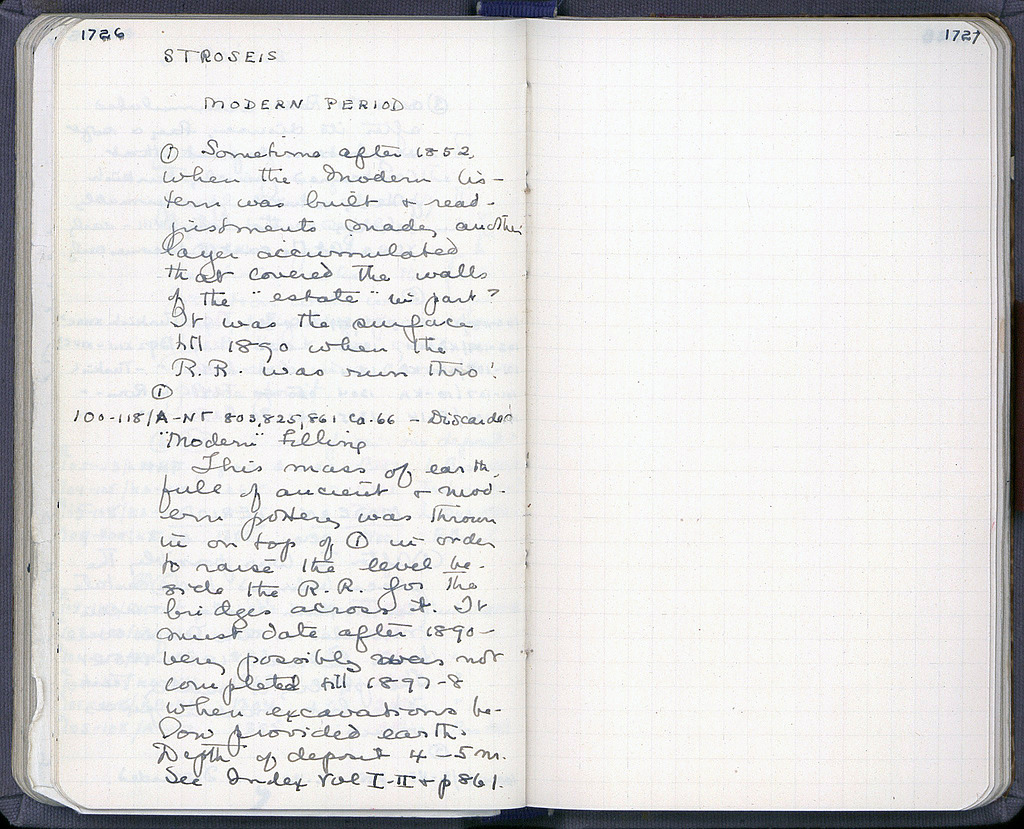 1726
STROSEIS
MODERN PERIOD
① Sometime after 1852,
when the modern cis-
tern was built + read-
justments made, another
layer accumulated
that covered the walls
of the "estate" in part?
It was the surface
till 1890 when the
R.R. was run thro'.
①
100-118/A-NT 803,825,861 ca.66 - Discarded
"Modern" Filling
This mass of earth,
full of ancient + mod-
ern pottery was thrown
in on top of ① in order
to raise the level be-
side the R.R. for the
bridges across it. It
must date after 1890 -
very possibly was not
completed till 1897-8
when excavations be-
low provided earth.
Depth of deposit 4-5m.
See Index Vol I-II + p 861.
1727